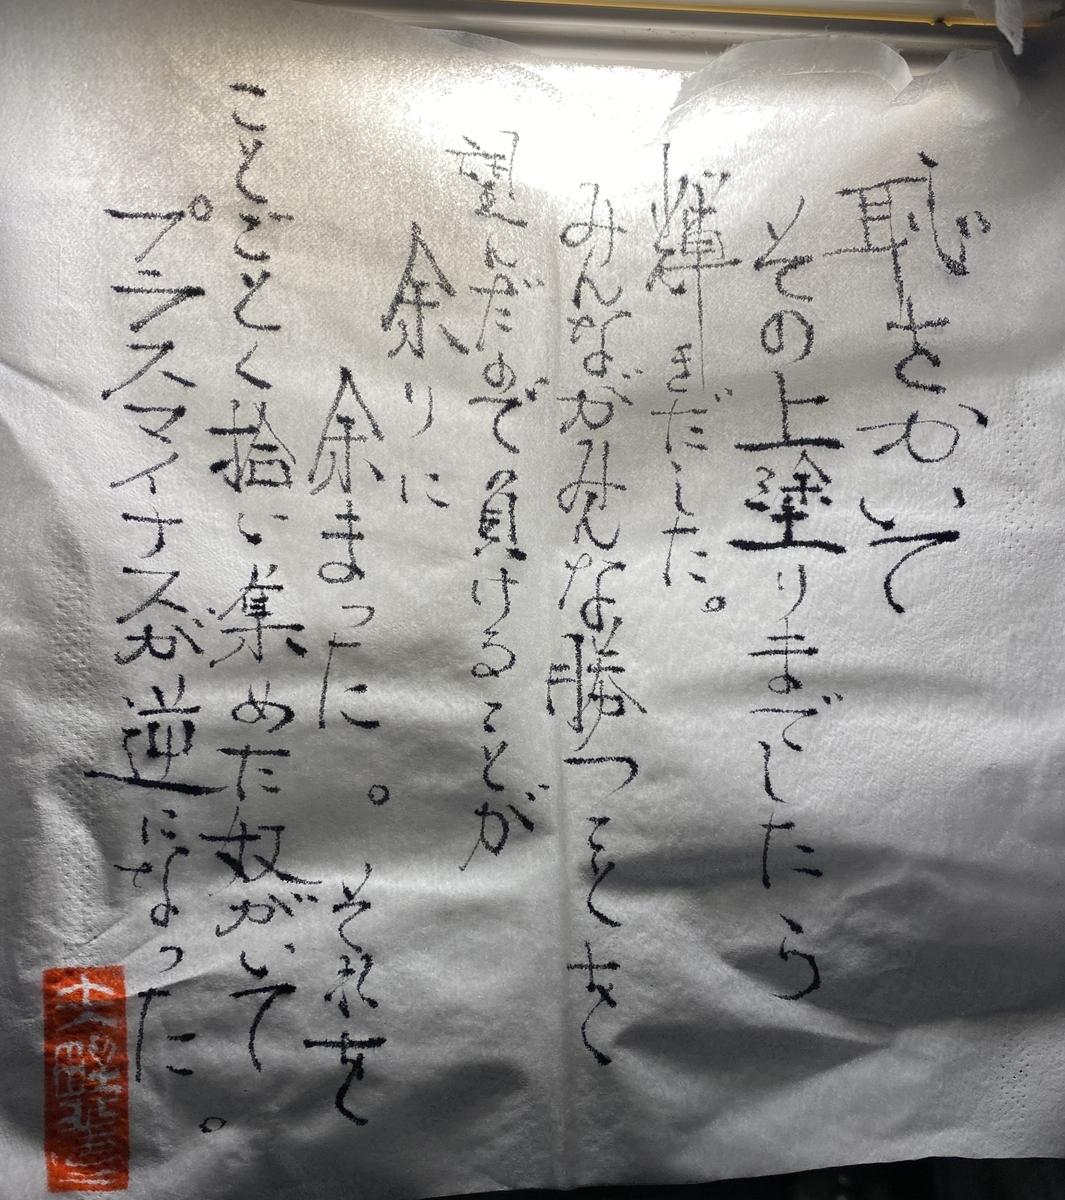 恥をかいて
その上塗りまでしたら
輝きだした。
みんながみんな勝つことを
望んだので負けることが
余りに
余まった。それを
ことごとく拾い集めた奴がいて
プラスマイナスが逆になった。